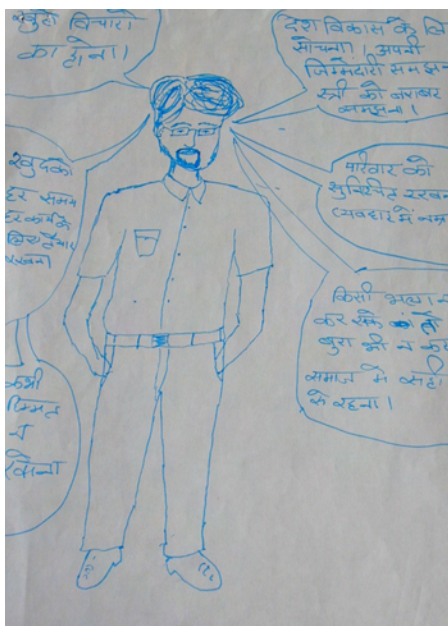 खुले विचारो
का होना।
देश विकास के
सोचना। अपनी
जिम्मेदारी समझ
स्त्री को बराबर
समझना।
खुदको
हर समय
हर कार्य के
लिए तैयार
रखना
परिवार को
रखना
व्यवहार में
किसी भला
कर सके तो
बुरा भी न
समाज मे सही
रहना।
कभी
न